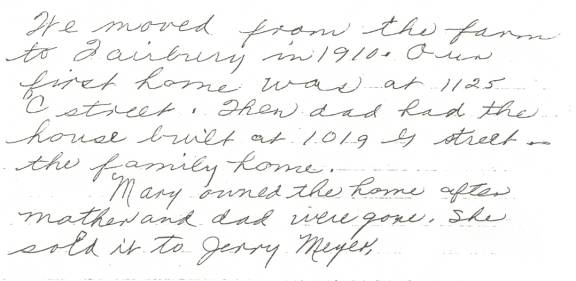 We moved from the farm
to Fairbury in 1910. Our
first home was at 1125
C street. Then dad had the
house built at 1019 G street -
the family home.
Mary owned the home after
mother and dad were gone. She
sold it to Jerry Meyer.